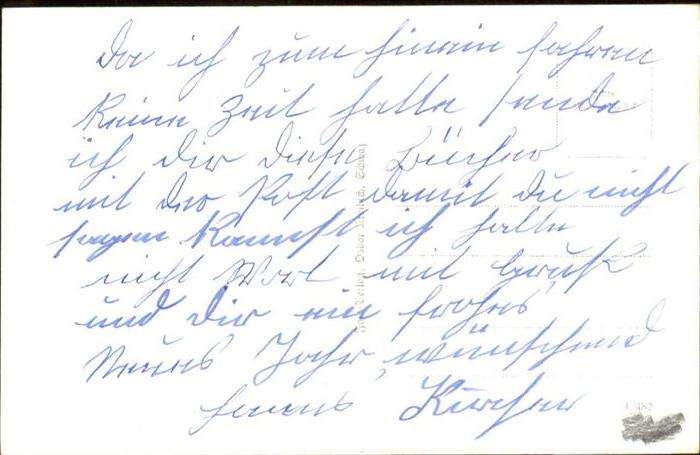 Da ich zum hinein fahren
keine Zeit hatte sende
ich dir diese Bücher
mit der Post damit du nicht
sagen kannst ich halte
nicht Wort mit Gruß
und dir ein frohes
Neues Jahr wünschend